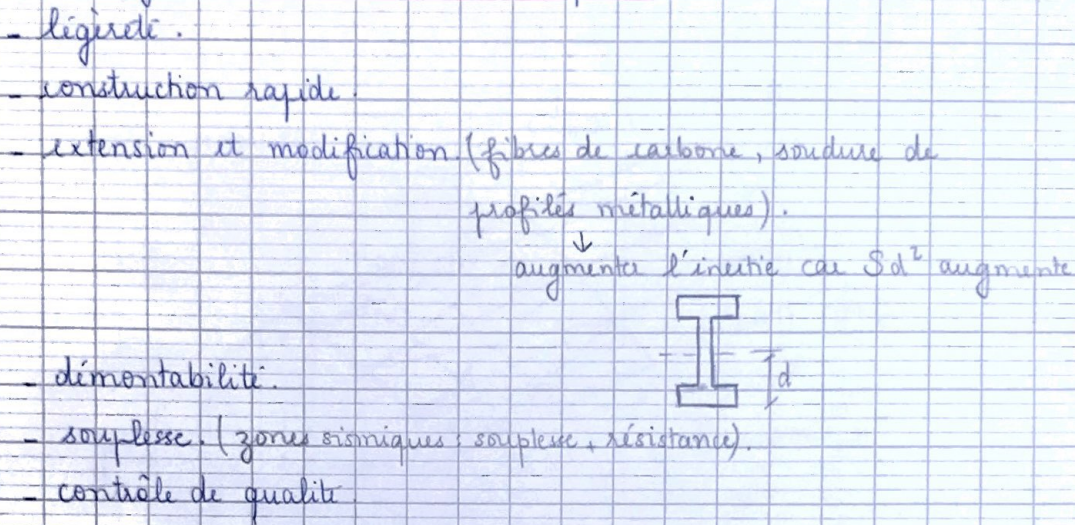 - légèreté.
- construction rapide.
- extension et modification. (fibres de carbone, soudure de
profilés métalliques).
↓
augmenter l'inertie car Sd² augmente
d
- démontabilité.
- souplesse. (zones sismiques : souplesse + résistance).
- contrôle de qualité